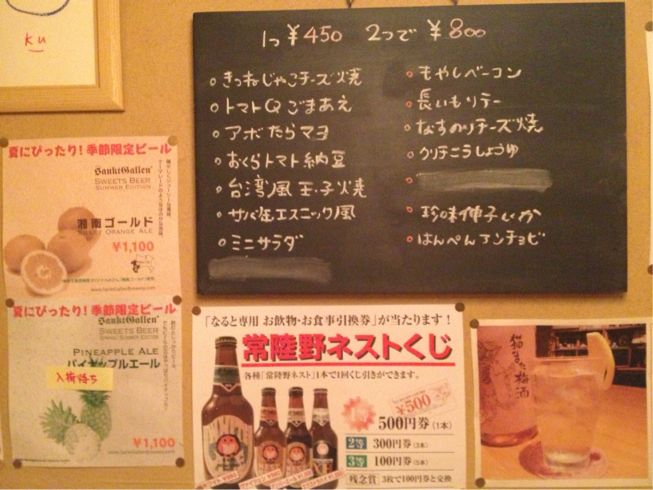 ku
1つ ¥450 2つで ¥800
きつねじゃこチーズ焼
トマトQごまあえ
アボたらマヨ
おくらトマト納豆
台湾風玉子焼
サバ缶エスニック風
ミニサラダ
もやしベーコン
長いもソテー
なすのりチーズ焼
クリチーニラしょうゆ
珍味伸子いか
はんぺんアンチョビ
夏にぴったり!季節限定ビール
SanktGallen
SWEETS BEER
SUMMER EDITION
湘南ゴールド
SWEET ORANGE ALE
¥1,100
夏にぴったり!季節限定ビール
SanktGallen
SWEETS BEER
SPRING/SUMMER EDITION
PINEAPPLE ALE
パイナップルエール
入荷待ち
¥1,100
「なると専用 お飲物・お食事引換券」が当たります!
常陸野ネストくじ
各種「常陸野ネスト」1本で1回くじ引ができます。
¥500
500円券(1本)
2等 300円券(3本)
3等 100円券(5本)
残念賞 3枚で100円券と交換
猫また梅酒